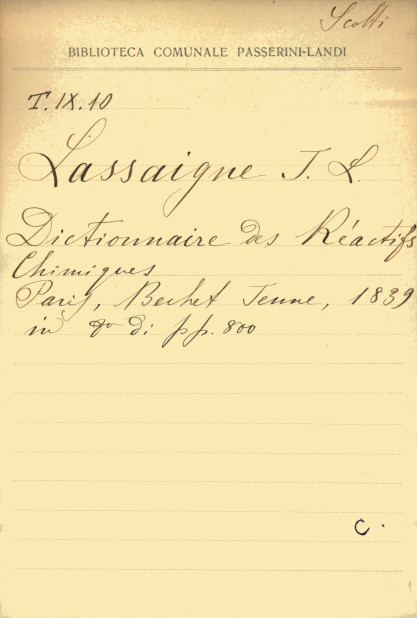 Scotti
BIBLIOTECA COMUNALE PASSERINI-LANDI
T.IX.10
Lassaigne J. L.
Dictionnaire des Réactifs
Chimiques
Paris, Bechet Jenne, 1839
in 8º di pp. 800
C.